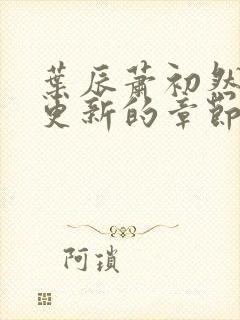 葉辰蕭初然
更新的章節
阿瑣